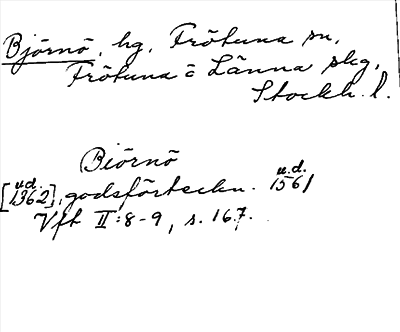 Björnö, hg, Frötuna sn,
Frötuna o Länna skg,
Stockh. l.
Biörnö
u.d. u.d.
[1362], godsförteckn. 1561
Vfh II:8-9, s. 167.